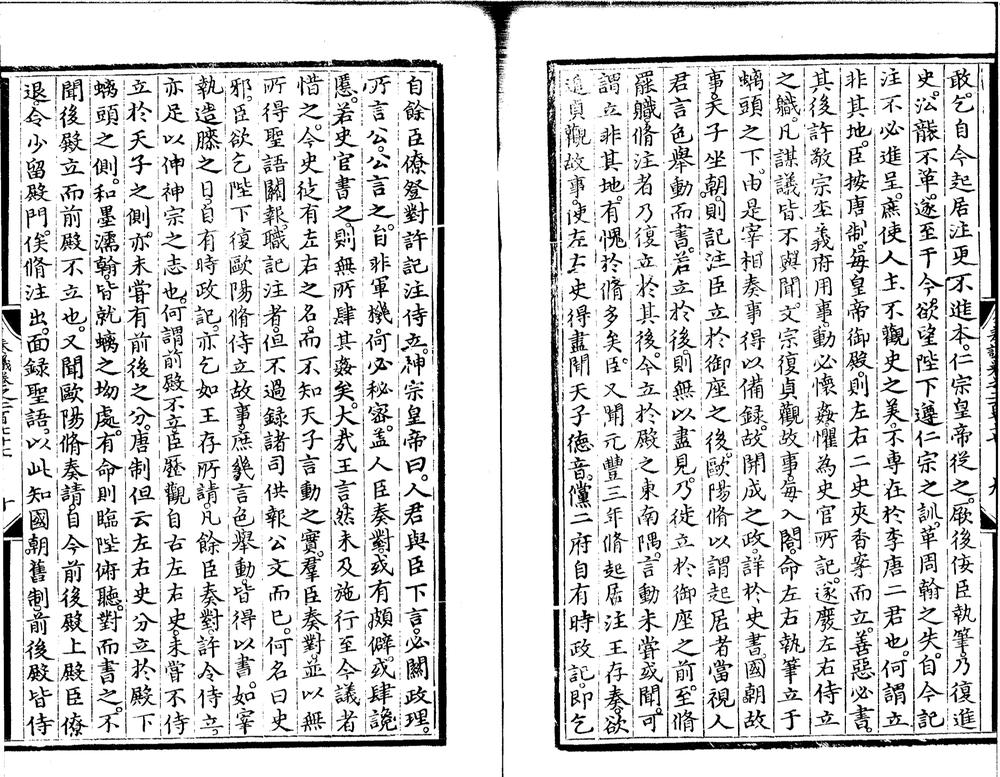 敢乞自今起居注更不進本仁宗皇帝從之厥後佞臣執筆乃復進
史沿襲不革遂至于今欲望陛下遵仁宗之訓革周翰之失自今記
注不必進呈庶使人主不觀史之美不專在於李唐二君也何謂立
非其地臣按唐制每皇帝御殿則左右二史夾香案而立善惡必書
其後許敬宗李義府用事動必懷姦懼為史官所記遂廢左右侍立
之職凡謀議皆不與聞文宗復貞觀故事每入閤命左右執筆立于
螭頭之下由是宰相奏事得以備錄故開成之政詳於史書國朝故
事天子坐朝則記注臣立於御座之後歐陽脩以謂起居者當視人
君言色舉動而書若立於後則無以盡見乃徙立於御座之前至脩
罷職脩注者乃復立於其後今立於殿之東南隅言動未嘗或聞可
謂立非其地有愧於脩多矣臣又聞元豐三年脩起居注王存奏欲
追貞觀故事使左右史得盡聞天子德音儻二府自有時政記即乞
自餘臣僚登對許記注侍立神宗皇帝曰人君與臣下言必關政理
所言公公言之自非軍機何必秘密蓋人臣奏對或有頗僻或肆讒
慝若史官書之則無所肆其姦矣大哉王言然未及施行至今議者
惜之今史徒有左右之名而不知天子言動之實羣臣奏對並以無
所得聖語關報職記注者但不過錄諸司供報公文而已何名曰史
邪臣欲乞陛下復歐陽脩侍立故事庶幾言色舉動皆得以書如宰
執造膝之日自有時政記亦乞如王存所請凡餘臣奏對許令侍立
亦足以伸神宗之志也何謂前殿不立臣歷觀自古左右史未嘗不侍
立於天子之側亦未嘗有前後之分唐制但云左右史分立於殿下
螭頭之側和墨濡翰皆就螭之坳處有命則臨陛俯聽對而書之不
聞後殿立而前殿不立也又聞歐陽脩奏請自今前後殿上殿臣僚
退令少留殿門俟脩注出面錄聖語以此知國朝舊制前後殿皆侍
十